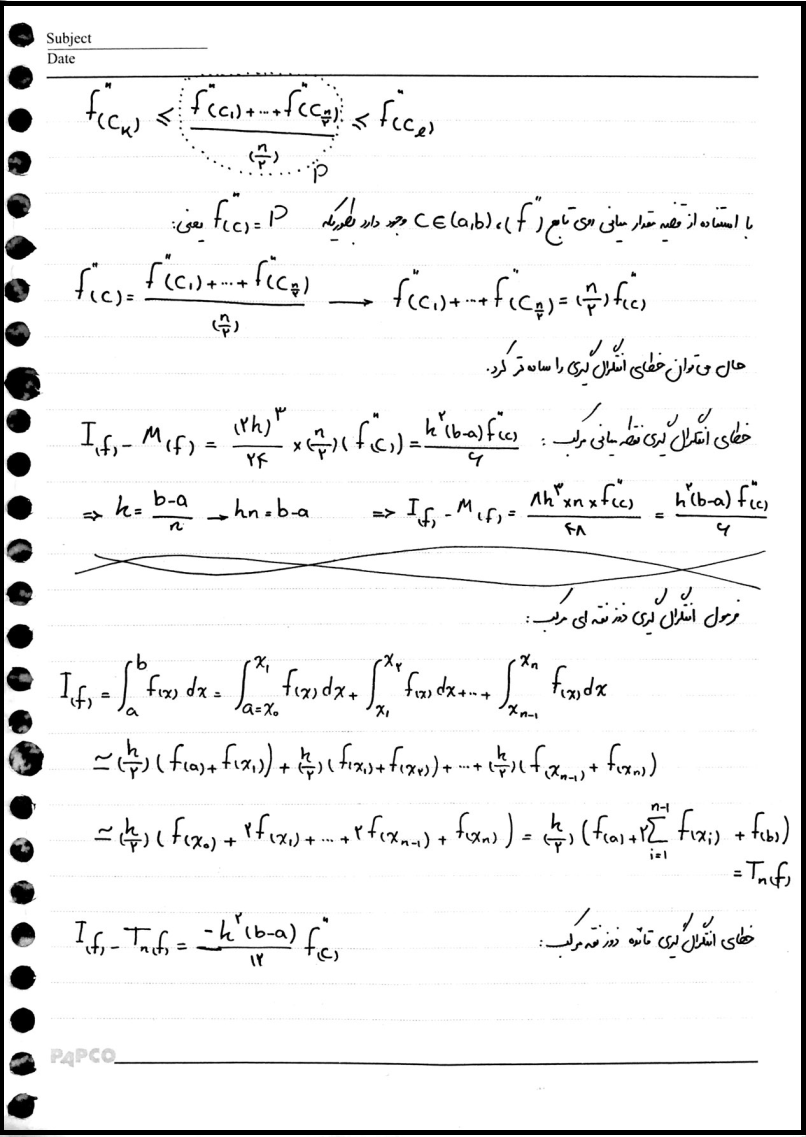 Subject
Date
f''(c_k) ≤ (f''(c_1) + ... + f''(c_{n/۲})) / (n/۲) ≤ f''(c_l)
P
با استفاده از قضیه مقدار میانی روی تابع (f'')، c ∈ (a,b) وجود دارد بطوریکه f''(c) = P یعنی:
f''(c) = (f''(c_1) + ... + f''(c_{n/۲})) / (n/۲) → f''(c_1) + ... + f''(c_{n/۲}) = (n/۲) f''(c)
حال می توان خطای انتگرال گیری را ساده تر کرد.
خطای انتگرال گیری نقطه میانی مرکب: I(f) - M(f) = (۲h)^۳ / ۲۴ × (n/۲) (f''(c)) = h^۲(b-a) f''(c) / ۶
⇒ h = (b-a)/n → hn = b-a ⇒ I(f) - M(f) = ۸h^۳ × n × f''(c) / ۴۸ = h^۲(b-a) f''(c) / ۶
فرمول انتگرال گیری ذوزنقه ای مرکب:
I(f) = ∫_a^b f(x) dx = ∫_{a=x_0}^{x_1} f(x) dx + ∫_{x_1}^{x_۲} f(x) dx + ... + ∫_{x_{n-1}}^{x_n} f(x) dx
≃ (h/۲) (f(a) + f(x_1)) + (h/۲) (f(x_1) + f(x_۲)) + ... + (h/۲) (f(x_{n-1}) + f(x_n))
≃ (h/۲) (f(x_0) + ۲f(x_1) + ... + ۲f(x_{n-1}) + f(x_n)) = (h/۲) (f(a) + ۲∑_{i=1}^{n-1} f(x_i) + f(b))
= T_n(f)
خطای انتگرال گیری قائده ذوزنقه مرکب: I(f) - T_n(f) = -h^۲(b-a) / ۱۲ f''(c)
PAPCO